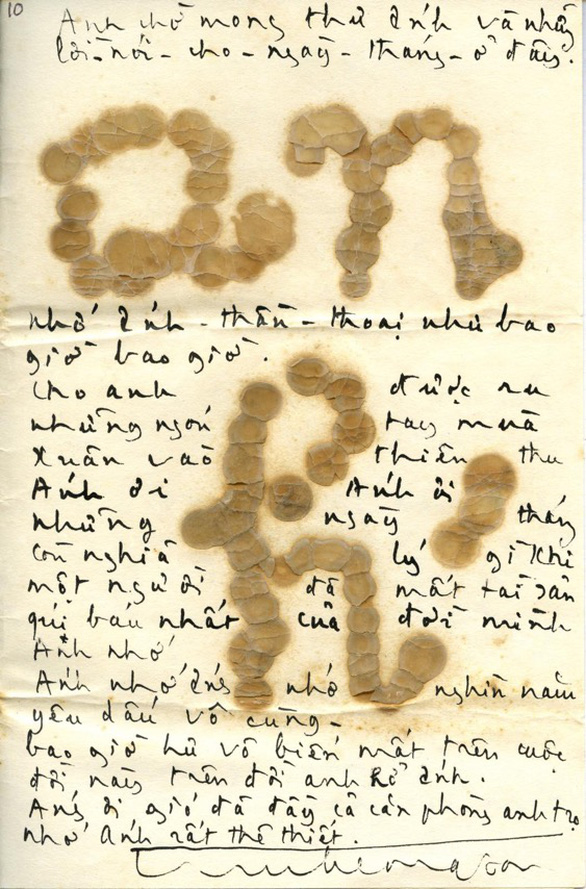 10
Anh chờ mong thư Ánh và những
lời-nói-cho-ngày-tháng-ở đây.
an
nhớ Ánh-thần-thoại như bao
giờ bao giờ.
Cho anh được ru
những ngón tay mùa
Xuân vào thiên thu
Ánh ơi Ánh ơi
những ngày tháng
còn nghĩa lý gì khi
một người đã mất tài sản
quí báu nhất của đời mình
h
Anh nhớ
Anh nhớ Ánh nhớ nghìn năm
yêu dấu vô cùng-
bao giờ hư vô biến mất trên cuộc
đời này trên đời anh Ánh.
Ánh ơi gió đã đầy cả căn phòng anh trọ
nhớ Ánh rất thê thiết.